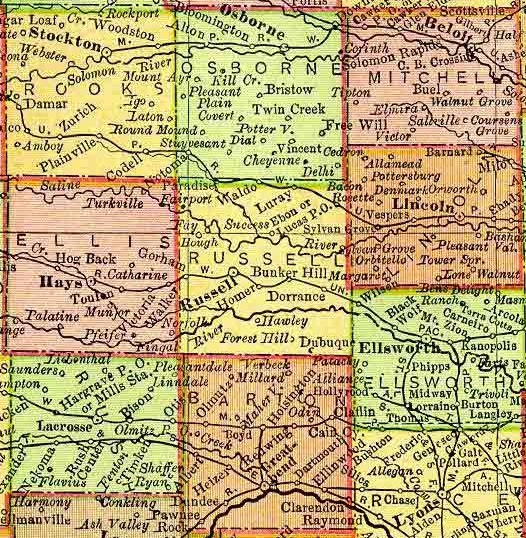 Rockport
Fortis
Scottsville
Sugar Loaf
Cr.
Woodston
Bloomington
Osborne
Beloit
Gilbert
Stockton
M.
R.
Corinth
Webster
Solomon Rapids
C. B. Crossing
Solomon
River
OSBORNE
MITCHELL
Mount Ayr
Kill Cr.
ROOKS
Pleasant
Plain
Bristow
Tipton
Buel
Walnut Grove
Damar
Igo
Covert
Twin Creek
Elmira
U.
Zurich
Laton
Free
Will
Saltville
Coursens
Grove
Round Mound
Potter V.
Victor
Amboy
Stuyvesant
Dial
Vincent
Cedron
Barnard
Plainville
P.
Cheyenne
Allamead
Milo
Codell
Natoma
Delhi
Pottersburg
Saline
Paradise
Waldo
Bacon
Denmark
Orworth
Turkville
Fairport
Luray
Rosette
Lincoln
Vespers
Success
Ebon or
Lucas P.O.
Sylvan Grove
ELLIS
Fay
Hough
River
Sylvan Grove
Pleasant Val.
Cr.
Hog Back
Gorham
RUSSELL
Orbitello
Tower Spr.
Hays
R.
Catharine
W.
Bunker Hill
Margaret
Lone Walnut
Toulon
Russell
Homer
Wilson
Bens
Delight
Victoria
Walker
Dorrance
Black
Wolf
Ranch
Terra Cotta
Arcola
Palatine
Munjor
Norfolk
Hawley
Mt. Zion
Carneiro
PAC.
Pfeifer
Fingal
River
Forest Hill
Dubuque
Ellsworth
Kanopolis
Liebenthal
Pleasantdale
Verbeck
Millard
Patachy
Phipps
Saunders
Hargrave P.O.
or Mills Sta.
Linndale
Olmitz
Alliance
ELLSWORTH
Bison
Hollyrood
Midway
Trivoli
Holsington
Odin
Claflin
Lorraine
Burton
Langley
Lacrosse
Olmitz P.
M.
Boyd
Cain
Thomas
Nekoma
Rush
Center
Creek
Bushton
Frederick
Galt
Flavius
Timken
Shaffer
Heizer
Great
Bend
Dartmouth
Ellinwood
Allegan
Pollard
Little
Ryan
Mitchell
Harmony
Conkling
Dundee
Clarendon
Chase
Ash Valley
Pawnee
Rock
Raymond
Lyons
Saxman
Alden